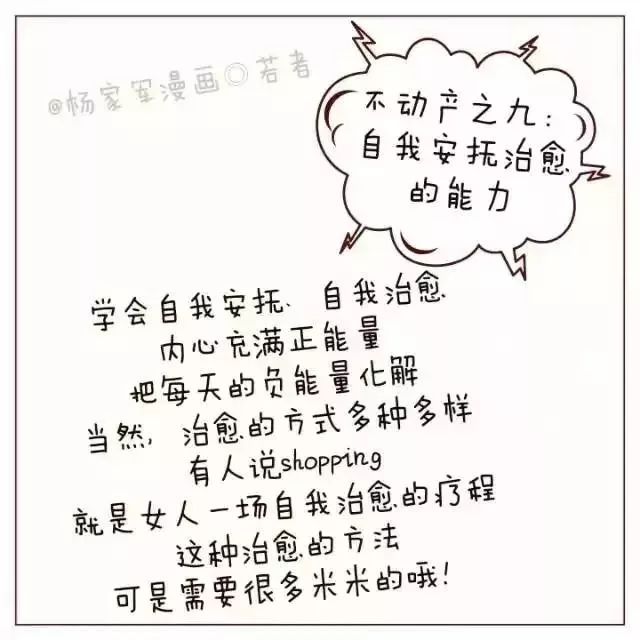 @杨家军漫画◎若者
不动产之九：
自我安抚治愈
的能力
学会自我安抚、自我治愈
内心充满正能量
把每天的负能量化解
当然，治愈的方式多种多样
有人说shopping
就是女人一场自我治愈的疗程
这种治愈的方法
可是需要很多米米的哦！